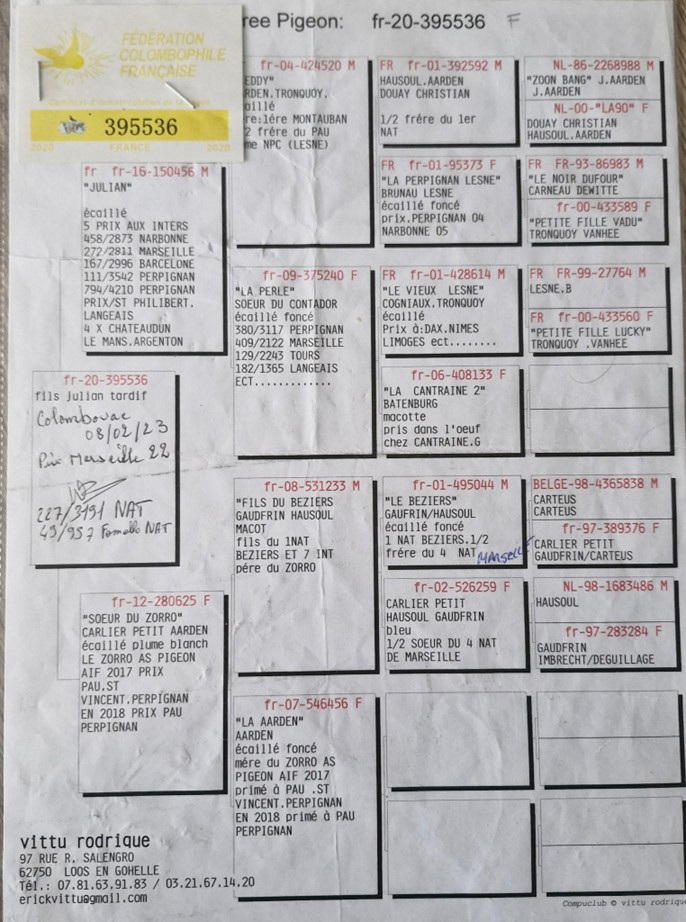 FÉDÉRATION
COLOMBOPHILE
FRANÇAISE
395536
2020 FRANCE 2020
ree Pigeon: fr-20-395536 F
fr-04-424520 M
EDDY"
RDEN.TRONQUOY.
aillé
re:1ére MONTAUBAN
2 frére du PAU
me NPC (LESNE)
FR fr-01-392592 M
HAUSOUL.AARDEN
DOUAY CHRISTIAN
1/2 frére du 1er
NAT
NL-86-2268988 M
"ZOON BANG" J.AARDEN
J.AARDEN
NL-00-"LA90" F
DOUAY CHRISTIAN
HAUSOUL.AARDEN
fr fr-16-150456 M
"JULIAN"
écaillé
5 PRIX AUX INTERS
458/2873 NARBONNE
272/2811 MARSEILLE
167/2996 BARCELONE
111/3542 PERPIGNAN
794/4210 PERPIGNAN
PRIX/ST PHILIBERT.
LANGEAIS
4 X CHATEAUDUN
LE MANS.ARGENTON
FR fr-01-95373 F
"LA PERPIGNAN LESNE"
BRUNAU LESNE
écaillé foncé
prix.PERPIGNAN 04
NARBONNE 05
FR FR-93-86983 M
"LE NOIR DUFOUR"
CARNEAU DEWITTE
fr-00-433589 F
"PETITE FILLE VADU"
TRONQUOY VANHEE
fr-09-375240 F
"LA PERLE"
SOEUR DU CONTADOR
écaillé foncé
380/3117 PERPIGNAN
409/2122 MARSEILLE
129/2243 TOURS
182/1365 LANGEAIS
ECT.............
FR fr-01-428614 M
"LE VIEUX LESNE"
COGNIAUX.TRONQUOY
écaillé
Prix à:DAX.NIMES
LIMOGES ect........
FR FR-99-27764 M
LESNE.B
FR fr-00-433560 F
"PETITE FILLE LUCKY"
TRONQUOY .VANHEE
fr-06-408133 F
"LA CANTRAINE 2"
BATENBURG
macotte
pris dans l'oeuf
chez CANTRAINE.G
fr-20-395536
fils Julian tardif
Colombovac
08/02/23
Prix Marseille 22
227/3191 NAT
49/957 Femelle NAT
fr-08-531233 M
"FILS DU BEZIERS
GAUDFRIN HAUSOUL
MACOT
fils du 1NAT
BEZIERS ET 7 INT
pére du ZORRO
fr-01-495044 M
"LE BEZIERS"
GAUFRIN/HAUSOUL
écaillé foncé
1 NAT BEZIERS.1/2
frére du 4 NAT
BELGE-98-4365838 M
CARTEUS
CARTEUS
fr-97-389376 F
CARLIER PETIT
GAUDFRIN/CARTEUS
fr-12-280625 F
"SOEUR DU ZORRO"
CARLIER PETIT AARDEN
écaillé plume blanch
LE ZORRO AS PIGEON
AIF 2017 PRIX
PAU.ST
VINCENT.PERPIGNAN
EN 2018 PRIX PAU
PERPIGNAN
fr-02-526259 F
CARLIER PETIT
HAUSOUL GAUDFRIN
bleu
1/2 SOEUR DU 4 NAT
DE MARSEILLE
NL-98-1683486 M
HAUSOUL
fr-97-283284 F
GAUDFRIN
IMBRECHT/DEGUILLAGE
fr-07-546456 F
"LA AARDEN"
AARDEN
écaillé foncé
mére du ZORRO AS
PIGEON AIF 2017
primé à PAU .ST
VINCENT.PERPIGNAN
EN 2018 primé à PAU
PERPIGNAN
vittu rodrique
97 RUE R. SALENGRO
62750 LOOS EN GOHELLE
Tél.: 07.81.63.91.83 / 03.21.67.14.20
erickvittu@gmail.com
Compuclub © vittu rodriqu